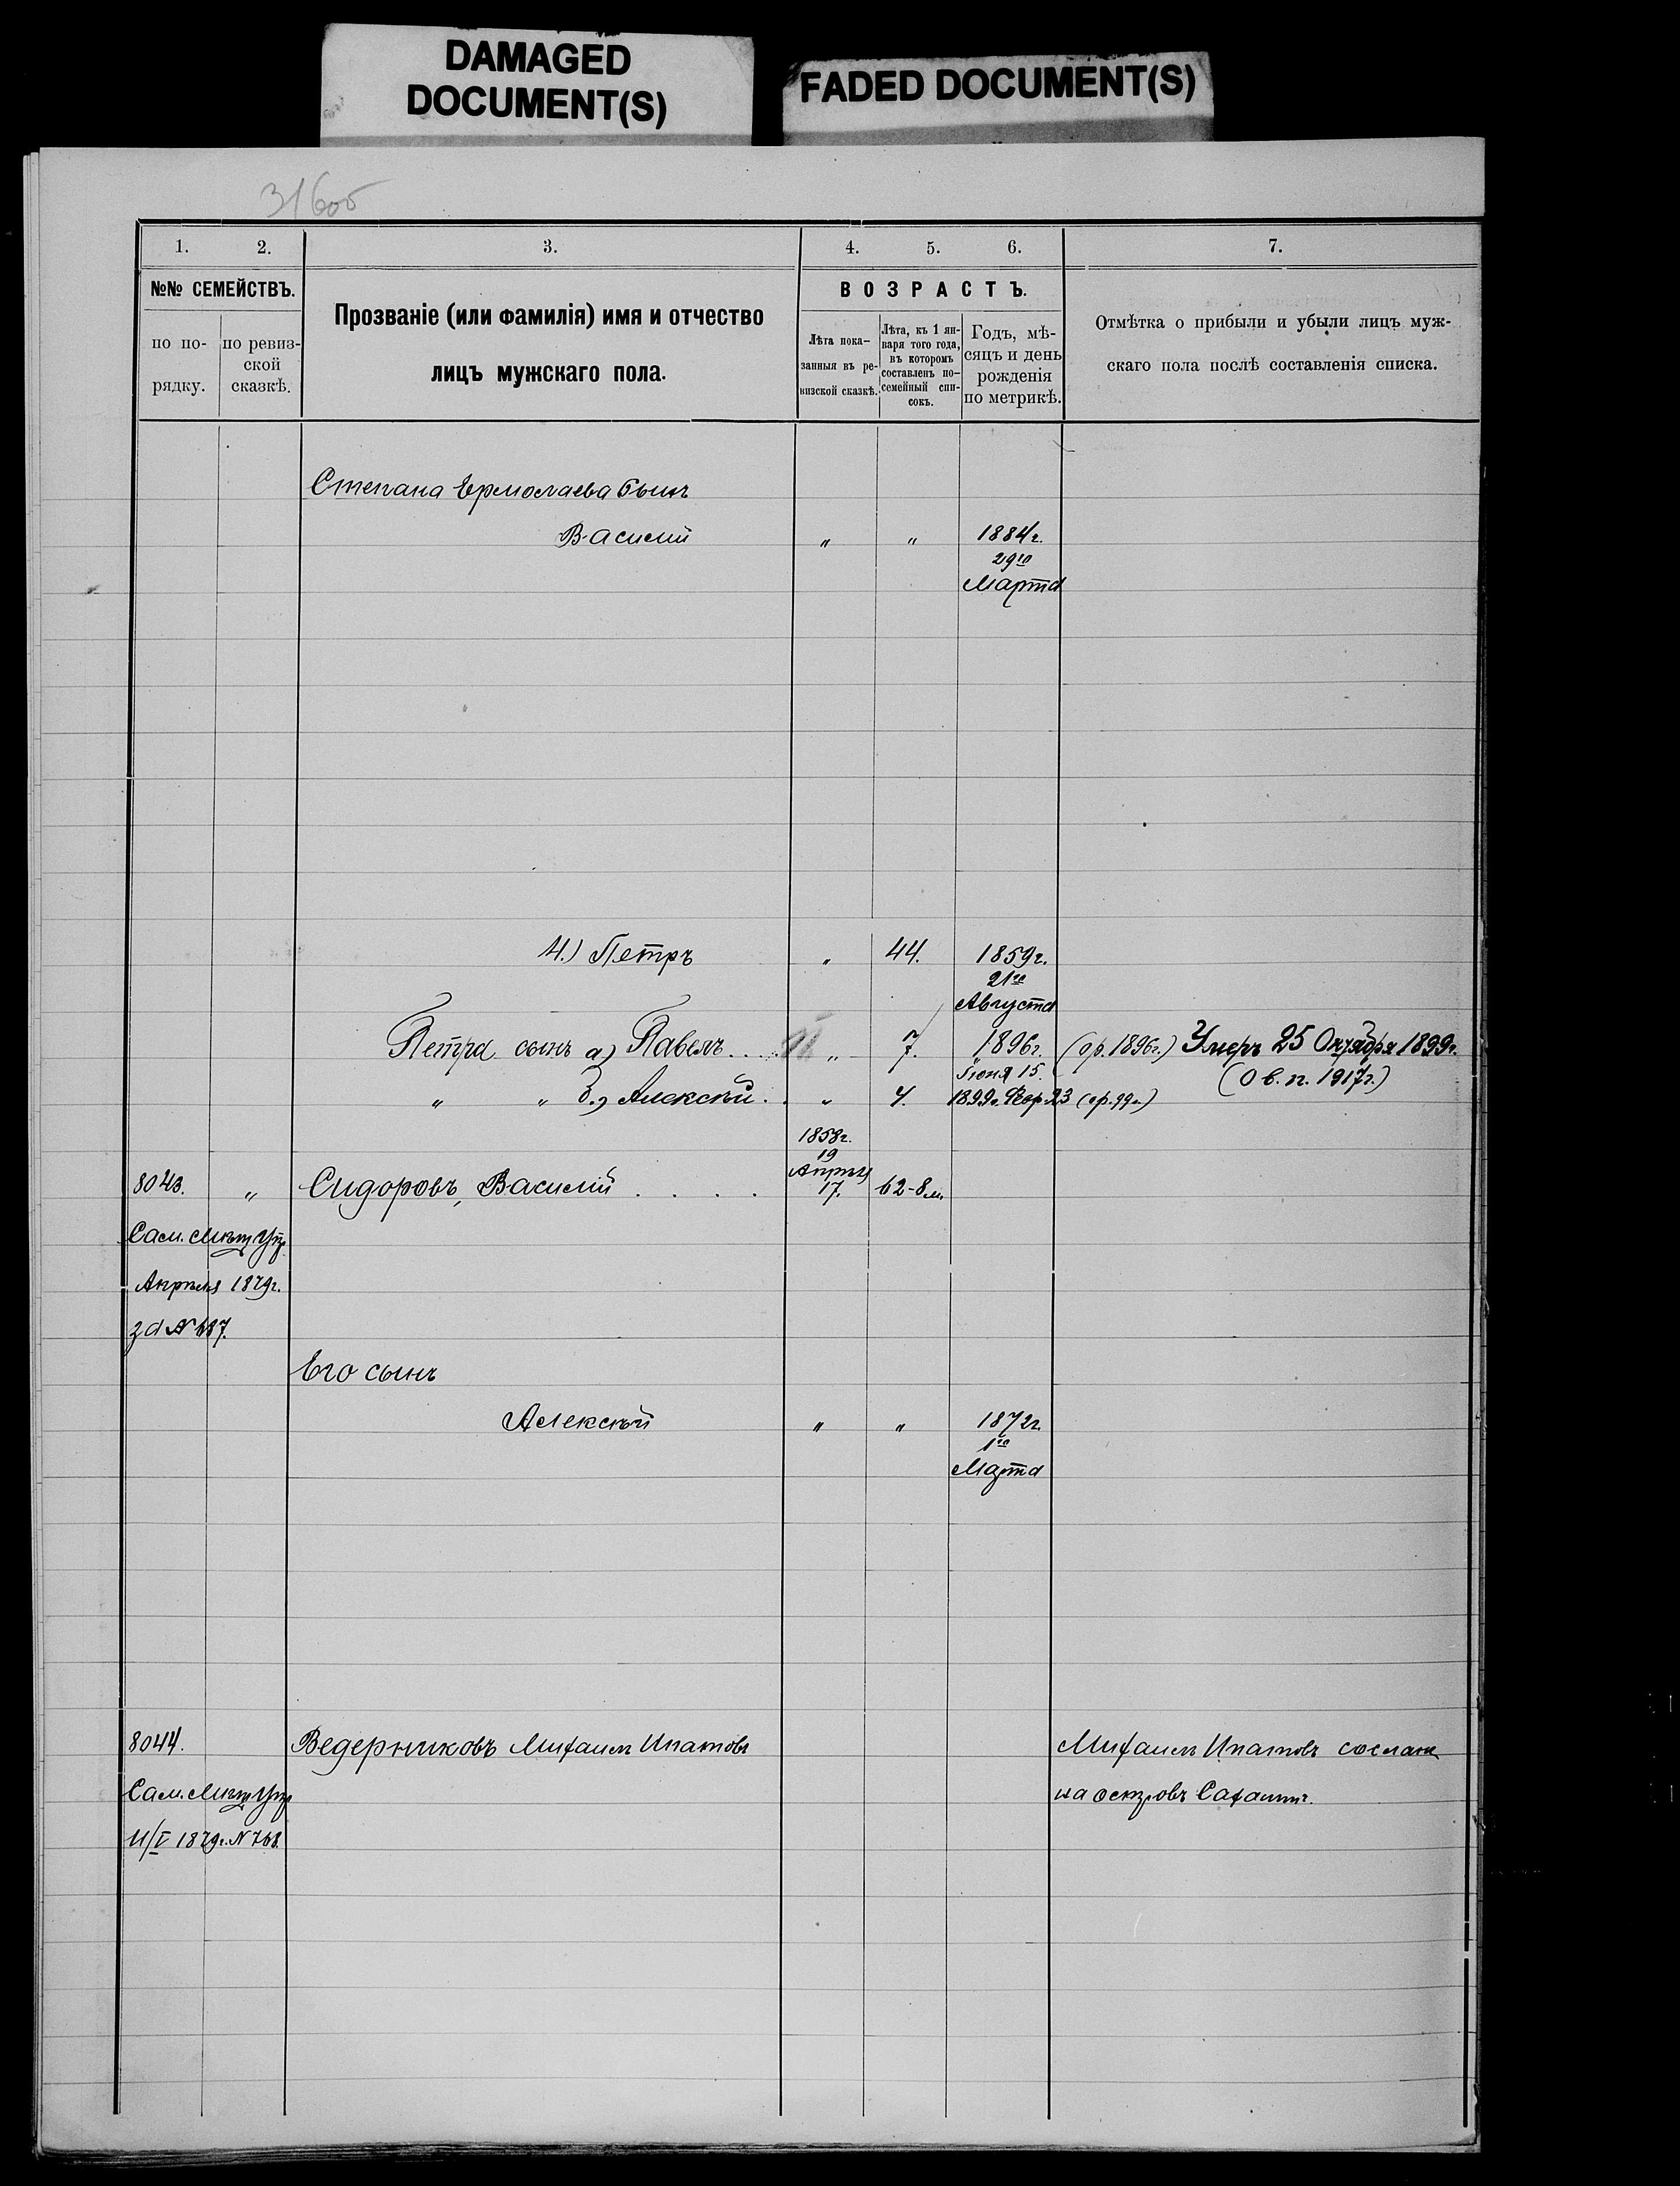 DAMAGED
DOCUMENT(S)
FADED DOCUMENT(S)
316об
1. 2. 3. 4. 5. 6. 7.
№№ СЕМЕЙСТВЪ.
по по-
рядку.
по ревиз-
ской
сказкѣ.
Прозваніе (или фамилія) имя и отчество
лицъ мужскаго пола.
ВОЗРАСТЪ.
Лѣта пока-
занныя въ ре-
визской сказкѣ.
Лѣта, къ 1 ян-
варя того года,
въ которомъ
составленъ по-
семейный спи-
сокъ.
Годъ, мѣ-
сяцъ и день
рожденія
по метрикѣ.
Отмѣтка о прибыли и убыли лицъ муж-
скаго пола послѣ составленія списка.
Степана Ермолаева сынъ
Василій " " 1884г.
29го
Марта
4.) Петръ " 44. 1859г.
21го
Августа
Петра сынъ а) Павелъ.... " 7. 1896г. (ор. 1896г.) Умеръ 25 Октября 1899г.
Іюня 15. (О в. п. 1917г.)
" " б.) Алексѣй.. " 4. 1899г. Фер 23 (ор. 99г.)
1858г.
19
Апрѣля
8043. " Сидоровъ, Василій . . . . 17. 62-8м.
Сам. Мѣщ Упр.
Апрѣля 1879г.
за № 687.
Его сынъ
Алексѣй " " 1872г.
1го
Марта
8044. Ведерниковъ Михаилъ Ипатовъ Михаилъ Ипатовъ сосланъ
Сам. Мѣщ Упр на островъ Сахалинъ.
11/V 1879г. № 768.